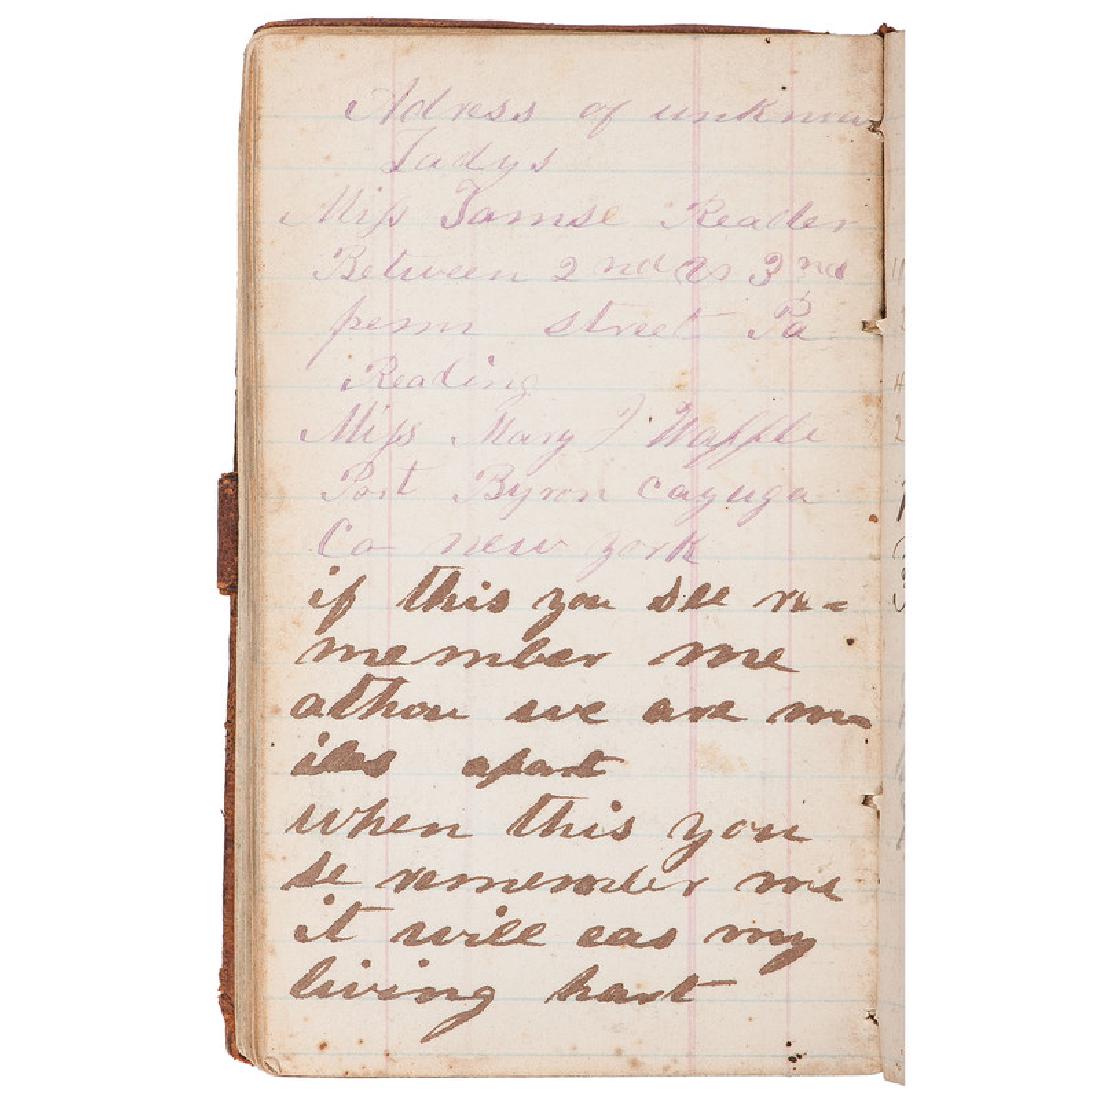 Adress of unknown
Ladys
Miss Jamse Reader
Between 2 nd & 3 nd
penn street Pa
Reading
Miss Mary J Waffle
Port Byron cayuga
Co new york
if this you see re=
member me
althou we are m=
iles apart
when this you
se remember me
it will eas my
living hart